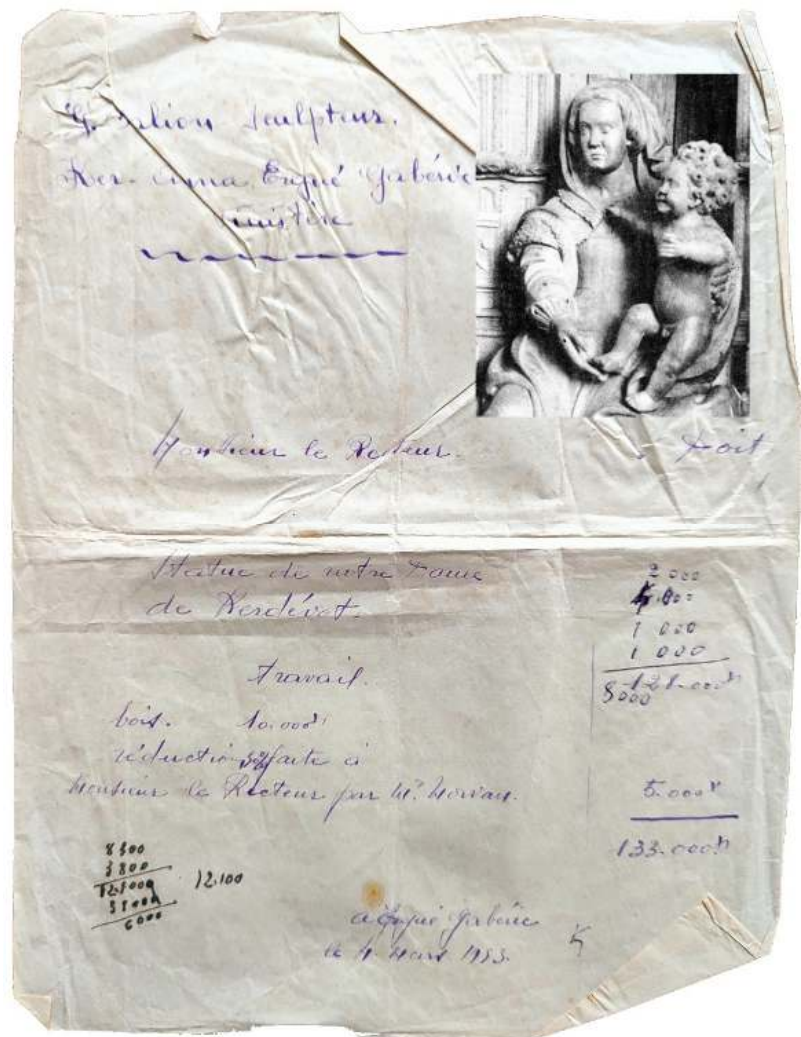 Sculpteur.
Ker- Anna Ergué Gabéric
Finistère
Monsieur le Recteur. Doit
Statue de notre Dame
de Kerdévot.
2 000
1 000
1 000
8000
travail.
bois. 10.000 fr
réduction faite à
Monsieur le Recteur par Mr. Morvan. 5.000 fr
133.000 fr
8300
3800
12.100
6000
à Ergué Gabéric
le Mars